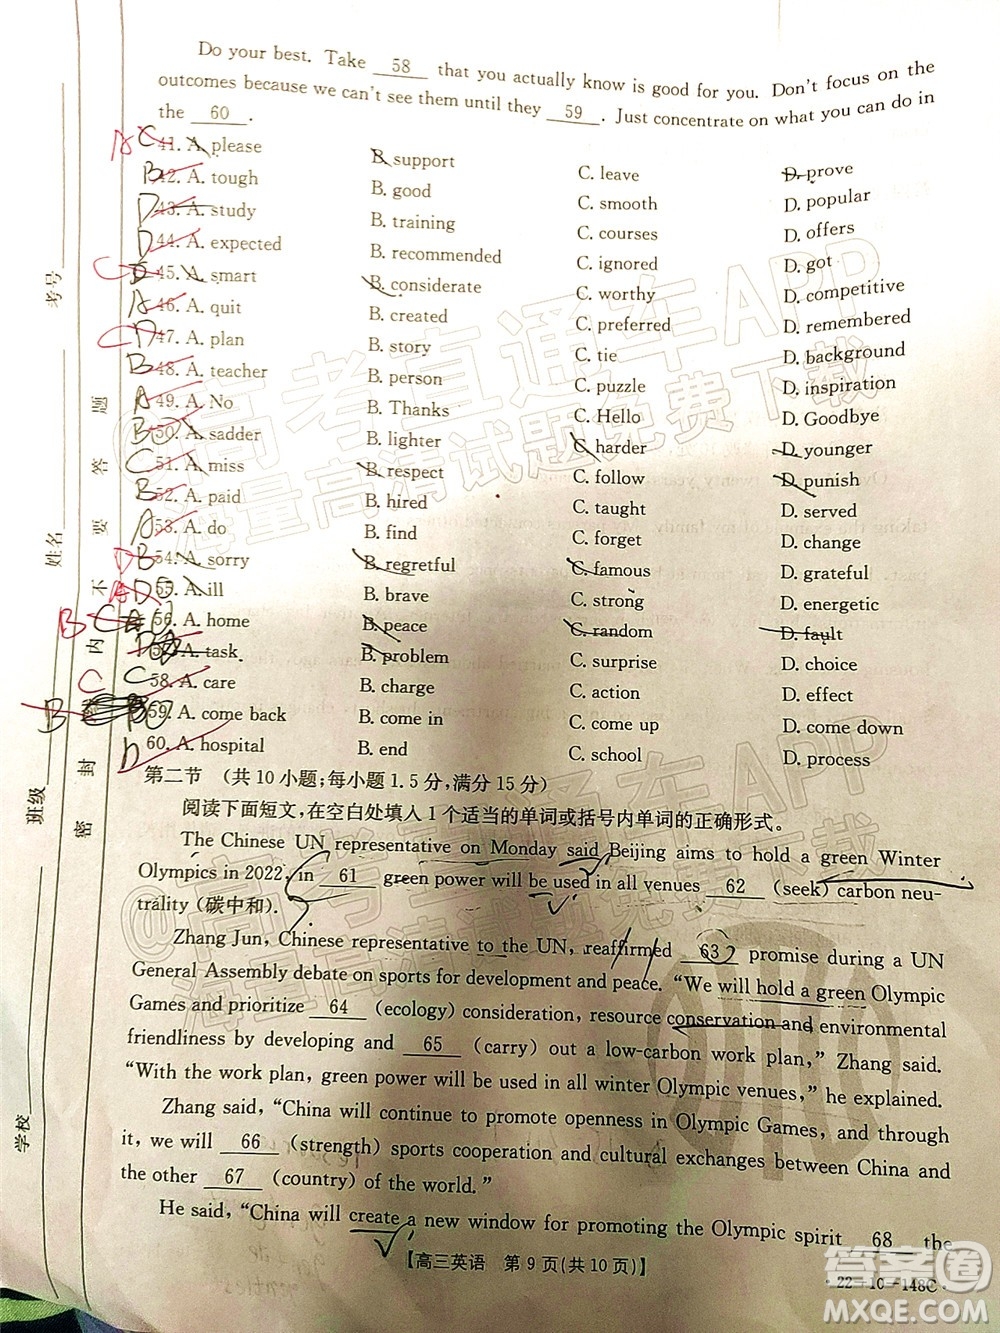 Do your best. Take 58 that you actually know is good for you. Don't focus on the
outcomes because we can't see them until they 59. Just concentrate on what you can do in
the 60.
41. A. please B. support C. leave D. prove
42. A. tough B. good C. smooth D. popular
43. A. study B. training C. courses D. offers
44. A. expected B. recommended C. ignored D. got
45. A. smart B. considerate C. worthy D. competitive
46. A. quit B. created C. preferred D. remembered
47. A. plan B. story C. tie D. background
48. A. teacher B. person C. puzzle D. inspiration
49. A. No B. Thanks C. Hello D. Goodbye
50. A. sadder B. lighter C. harder D. younger
51. A. miss B. respect C. follow D. punish
52. A. paid B. hired C. taught D. served
53. A. do B. find C. forget D. change
54. A. sorry B. regretful C. famous D. grateful
55. A. ill B. brave C. strong D. energetic
56. A. home B. peace C. random D. fault
57. A. task B. problem C. surprise D. choice
58. A. care B. charge C. action D. effect
59. A. come back B. come in C. come up D. come down
60. A. hospital B. end C. school D. process
第二节 (共10小题;每小题1.5分,满分15分)
阅读下面短文,在空白处填入1个适当的单词或括号内单词的正确形式。
The Chinese UN representative on Monday said Beijing aims to hold a green Winter
Olympics in 2022, in 61 green power will be used in all venues 62 (seek) carbon neu-
trality (碳中和).
Zhang Jun, Chinese representative to the UN, reaffirmed 63 promise during a UN
General Assembly debate on sports for development and peace. "We will hold a green Olympic
Games and prioritize 64 (ecology) consideration, resource conservation and environmental
friendliness by developing and 65 (carry) out a low-carbon work plan," Zhang said.
"With the work plan, green power will be used in all winter Olympic venues," he explained.
Zhang said, "China will continue to promote openness in Olympic Games, and through
it, we will 66 (strength) sports cooperation and cultural exchanges between China and
the other 67 (country) of the world."
He said, "China will create a new window for promoting the Olympic spirit 68 the
【高三英语 第9页(共10页)】
·22-10-148C·
考号
姓名
班级
学校
密 封 线 内 不 要 答 题
@高考直通车APP
海量高清试题免费下载
@高考直通车APP
海量高清试题免费下载
答案圈
MXQE.COM